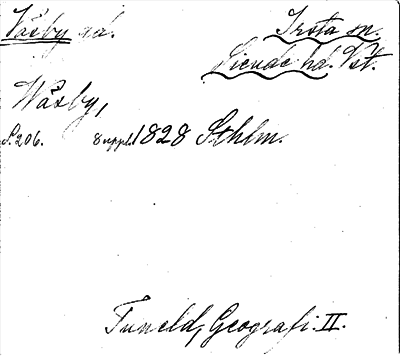 Väsby gd. Irsta sn.
Siende hd. Vst.
Wäsby,
S. 206. 8 uppl. 1828 Sthlm.
Tuneld, Geografi. II.